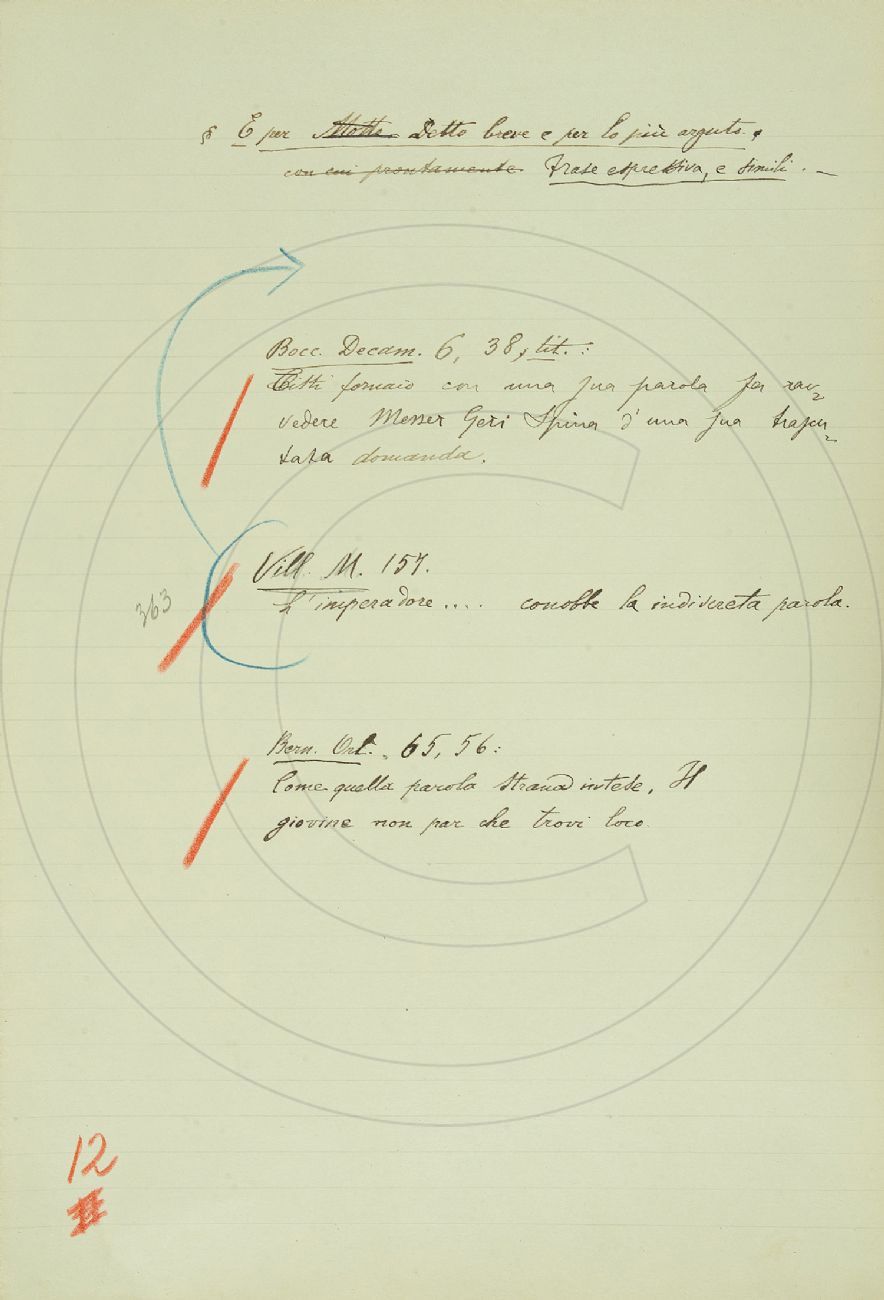 § È per Motto Detto breve e per lo più arguto,
con cui prontamente Frase espressiva, e simili. –
Bocc. Decam. 6, 38, tit.:
Cisti fornaio con una sua parola fa rav-
vedere Messer Geri Spina d'una sua trascu-
tata domanda.
Vill. M. 157.
363
L'imperadore .... conobbe la indiscreta parola.
Bern. Orl. 65, 56:
Come quella parola strana intese, Il
giovine non par che trovi loco.
12